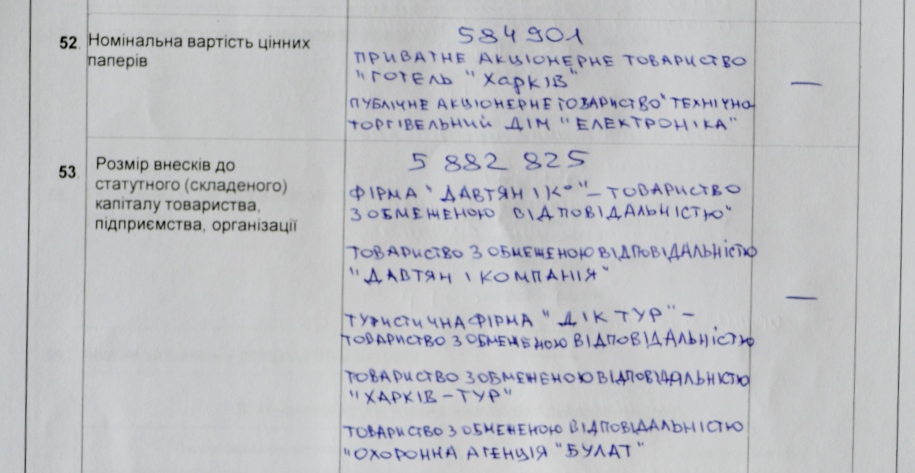 52. Номінальна вартість цінних паперів
584901
ПРИВАТНЕ АКЦІОНЕРНЕ ТОВАРИСТВО
"ГОТЕЛЬ "Харків"
ПУБЛІЧНЕ АКЦІОНЕРНЕ ТОВАРИСТВО "ТЕХНІЧНО
ТОРГІВЕЛЬНИЙ ДІМ "ЕЛЕКТРОНІКА"
—
53. Розмір внесків до
статутного (складеного)
капіталу товариства,
підприємства, організації
5 882 825
ФІРМА "ДАВТЯН І Ко" – ТОВАРИСТВО
З ОБМЕЖЕНОЮ ВІДПОВІДАЛЬНІСТЮ"
ТОВАРИСТВО З ОБМЕЖЕНОЮ ВІДПОВІДАЛЬНІСТЮ
"ДАВТЯН І КОМПАНІЯ"
ТУРИСТИЧНА ФІРМА "ДІК ТУР" –
ТОВАРИСТВО З ОБМЕЖЕНОЮ ВІДПОВІДАЛЬНІСТЮ
ТОВАРИСТВО З ОБМЕЖЕНОЮ ВІДПОВІДАЛЬНІСТЮ
"ХАРКІВ – ТУР"
ТОВАРИСТВО З ОБМЕЖЕНОЮ ВІДПОВІДАЛЬНІСТЮ
"ОХОРОННА АГЕНЦІЯ "БУЛАТ"
—